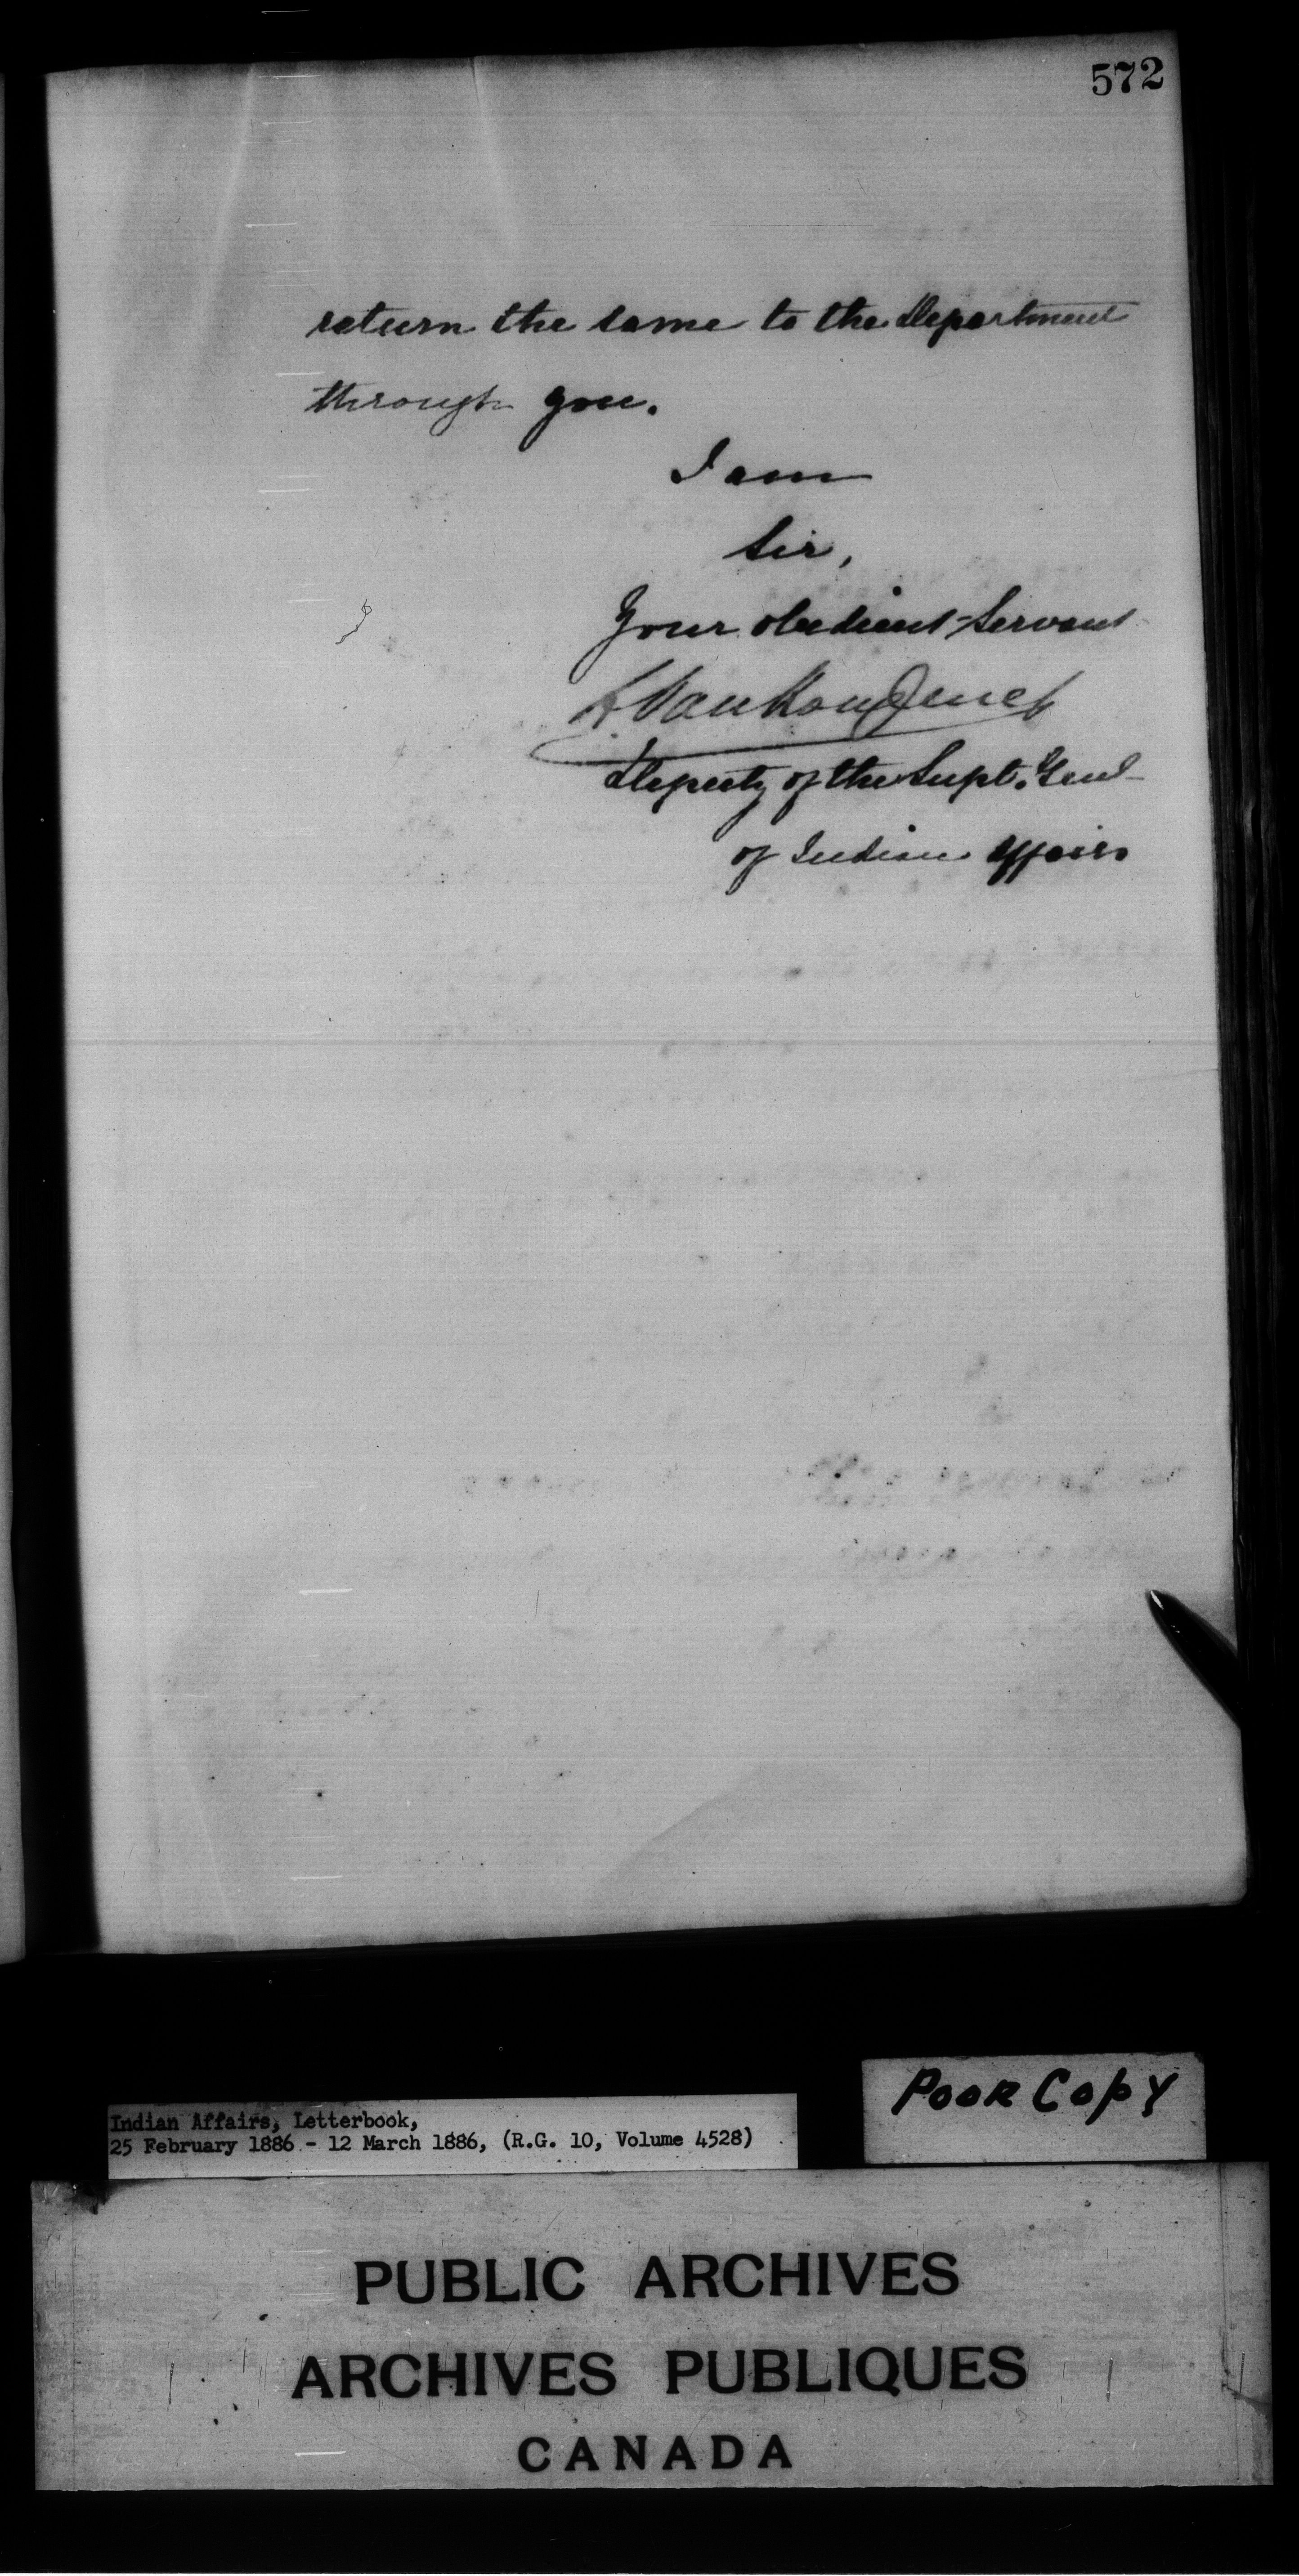 572
return the same to the Department
through you.
I am
Sir,
Your obedient Servant
L. VanKoughnet
Deputy of the Supt. Genl
of Indian Affairs
Poor Copy
Indian Affairs, Letterbook,
25 February 1886 - 12 March 1886, (R.G. 10, Volume 4528)
PUBLIC ARCHIVES
ARCHIVES PUBLIQUES
CANADA